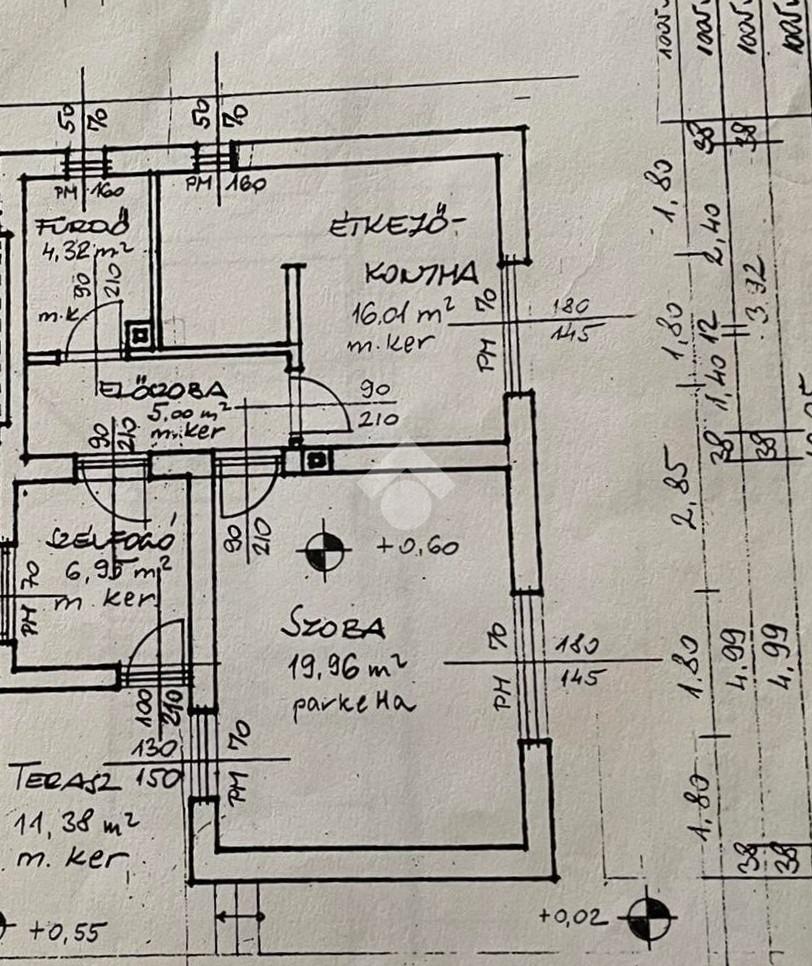 50
70
50
70
PM 160
PM 160
FÜRDŐ
4,32 m²
90
210
m.k
ÉTKEZŐ-
KONYHA
16,01 m²
m.ker
PM 70
180
145
ELŐSZOBA
5,00 m²
m.ker
90
210
90
210
90
210
SZÉLFOGÓ
6,95 m²
m. ker
PM 70
100
210
+0,60
SZOBA
19,96 m²
parketta
PM 70
180
145
130
150
PM 70
TERASZ
11,38 m²
m. ker
+0,55
+0,02
1,80
1,80
2,85
1,80
1,80
38
2,40
12
1,40
38
4,99
38
38
3,92
38
4,99
38